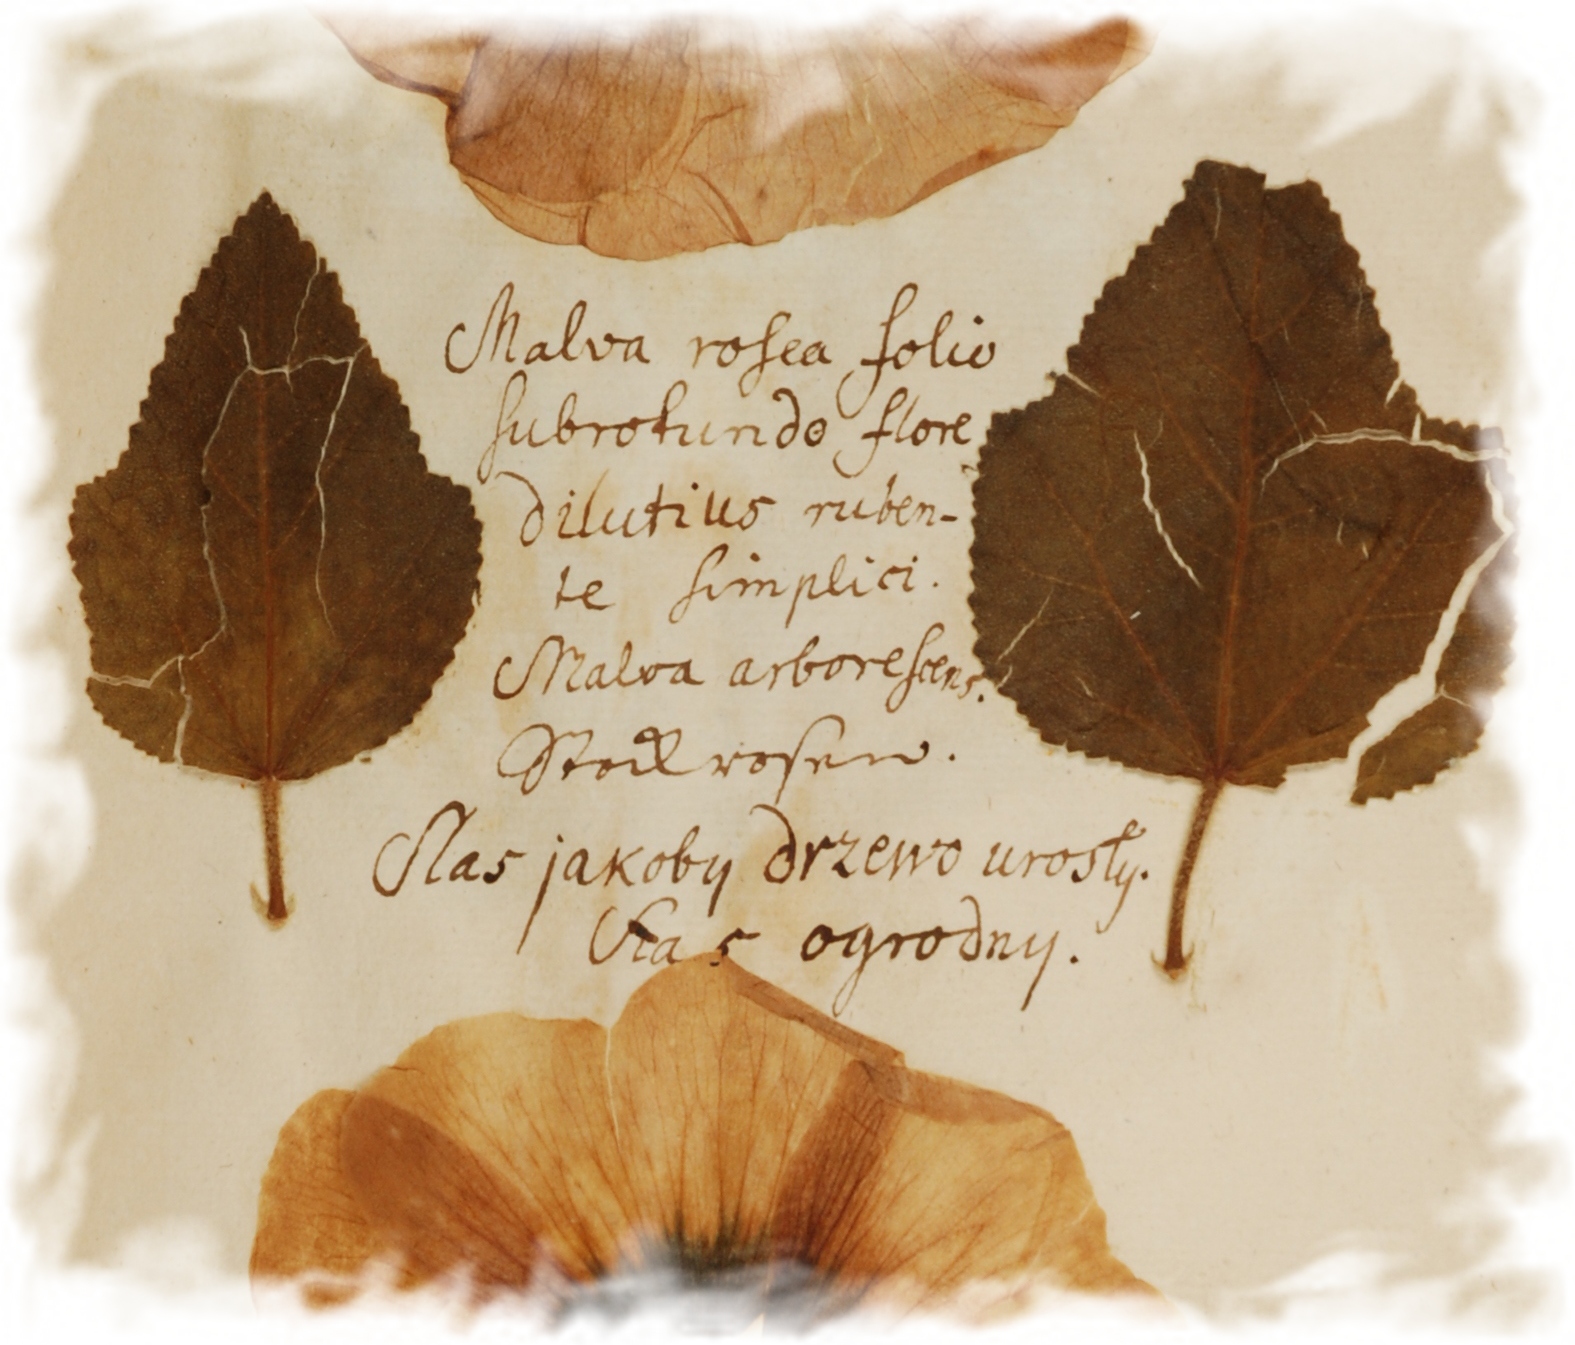 Malva rosea folio
subrotundo flore
dilutius ruben-
te simplici.
Malva arborescens.
Stockrosen.
Slas jakoby drzewo urosły.
Slas ogrodny.